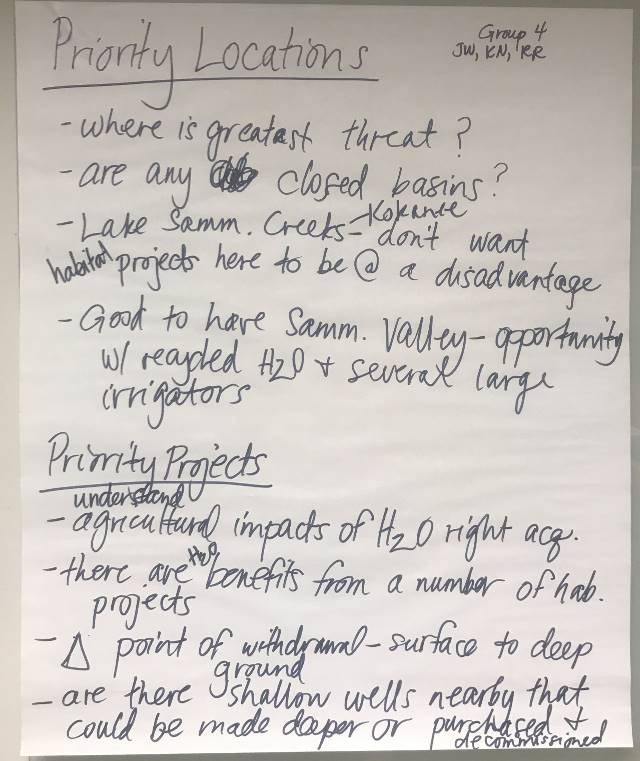 Priority Locations
Group 4
JW, KN, RR
- where is greatast threat?
- are any closed basins?
- Lake Samm. Creeks - Kokanee
don't want
habitat projects here to be @ a disadvantage
- Good to have Samm. Valley - opportunity
w/ recycled H2O + several large
irrigators
Priority Projects
understand
- agricultural impacts of H2O right acq.
- there are H2O benefits from a number of hab.
projects
- Δ point of withdrawal - surface to deep
ground
- are there shallow wells nearby that
could be made deeper or purchased +
decommissioned